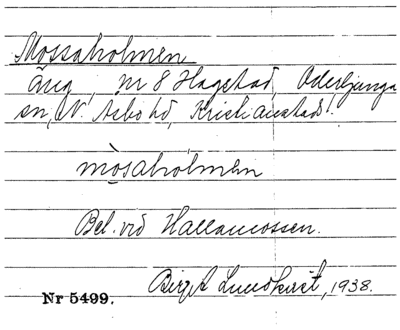 Mossaholmen
äng, nr 8 Hagstad, Oderljunga
sn, N. Åsbo hd, Kristianstads l.
mo̲saholmen
Bel. vid Hallamossen.
Birgit Lundkvist, 1938.
Nr 5499.